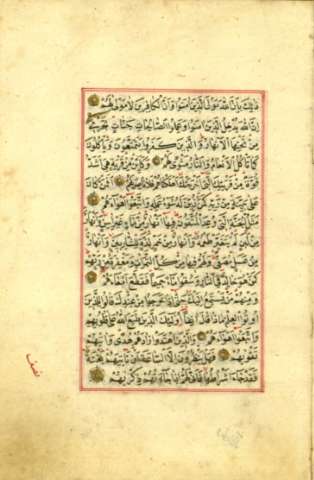 ذلك بان الله مولى الذين امنوا وان الكافرين لا مولى لهم
ان الله يدخل الذين امنوا وعملوا الصالحات جنات تجرى
من تحتها الانهار والذين كفروا يتمتعون وياكلون
كما تاكل الانعام والنار مثوى لهم وكاين من قرية هى اشد
قوة من قريتك التى اخرجتك اهلكناهم فلا ناصر لهم افمن كان
على بينة من ربه كمن زين له سوء عمله واتبعوا اهواءهم
مثل الجنة التى وعد المتقون فيها انهار من ماء غير اسن وانهار
من لبن لم يتغير طعمه وانهار من خمر لذة للشاربين وانهار
من عسل مصفى ولهم فيها من كل الثمرات ومغفرة من ربهم
كمن هو خالد فى النار وسقوا ماء حميما فقطع امعاءهم
ومنهم من يستمع اليك حتى اذا خرجوا من عندك قالوا للذين
اوتوا العلم ماذا قال انفا اولئك الذين طبع الله على قلوبهم
واتبعوا اهواءهم والذين اهتدوا زادهم هدى واتيهم
تقويهم فهل ينظرون الا الساعة ان تاتيهم بغتة
فقد جاء اشراطها فانى لهم اذا جاءتهم ذكريهم